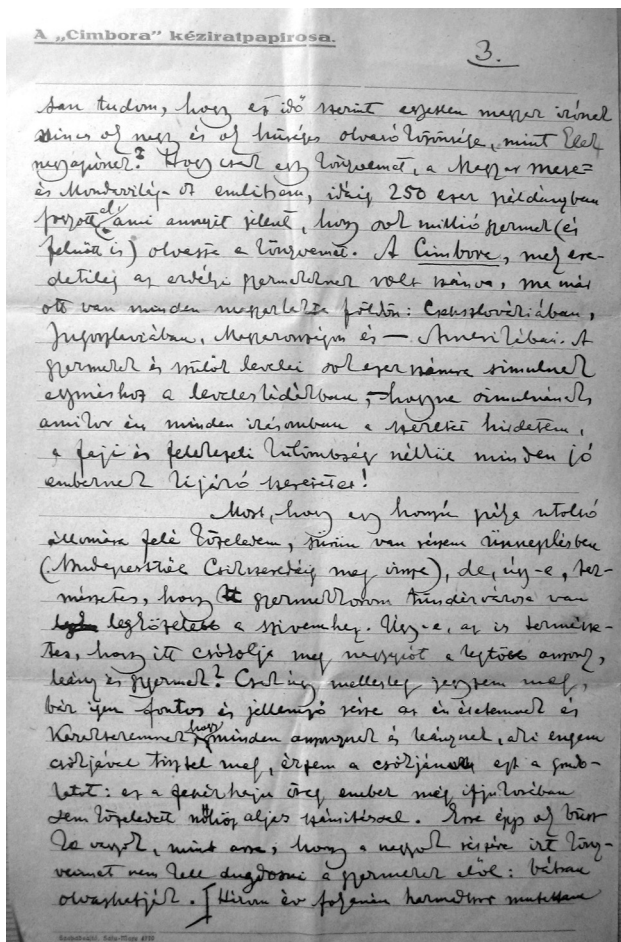 A „Cimbora” kéziratpapirosa.
3.
san tudom, hogy ez idő szerint egyetlen magyar irónak
sincs oly nagy és oly hűséges olvasó közönsége, mint Elek
nagyapónak? Hogy csak egy könyvemet, a Magyar mese=
és Mondavilágot emlitsem, idáig 250 ezer példányban
fogyott el, ami annyit jelent, hogy sok millió gyermek (és
felnőtt is) olvasta a könyvemet. A Cimbora, mely ere-
detileg az erdélyi gyermekeknek volt szánva, ma már
ott van minden magyarlakta földön: Csehszlovákiában,
Jugoszláviában, Magyarországon és — Amerikában. A
gyermekek és szülők levelei sok ezer számra simulnak
egymáshoz a levelesládákban, – hogyne simulnának,
amikor én minden irásomban a szeretetet hirdetem,
a faji és felekezeti különbség nélkül minden jó
embernek kijáró szeretetet!
Most, hogy egy hosszú pálya utolsó
állomása felé közeledem, sűrűn van részem ünneplésben
(Budapesttől Csikszeredáig meg vissza), de, úgy-e, ter-
mészetes, hogy gyermekkorom tündérvárosa van
legközelebb a szivemhez. Úgy-e, az is természe-
tes, hogy itt csókolja meg nagyapót a legtöbb asszony,
leány és gyermek? Csak úgy mellesleg jegyzem meg,
bár igen fontos és jellemző része az én életemnek és
karakteremnek, hogy minden asszonynak és leánynak, aki engem
csókjával tisztel meg, érzem a csókján ezt a gondo-
latot: ez a fehérhajú öreg ember még ifjúkorában
sem közeledett nőhöz aljas számitással. Erre épp oly büsz-
ke vagyok, mint arra, hogy a nagyok részére irt köny-
veimet nem kell dugdosni a gyermekek elől: bátran
olvashatják. Három év folyamán harmadszor mutattam